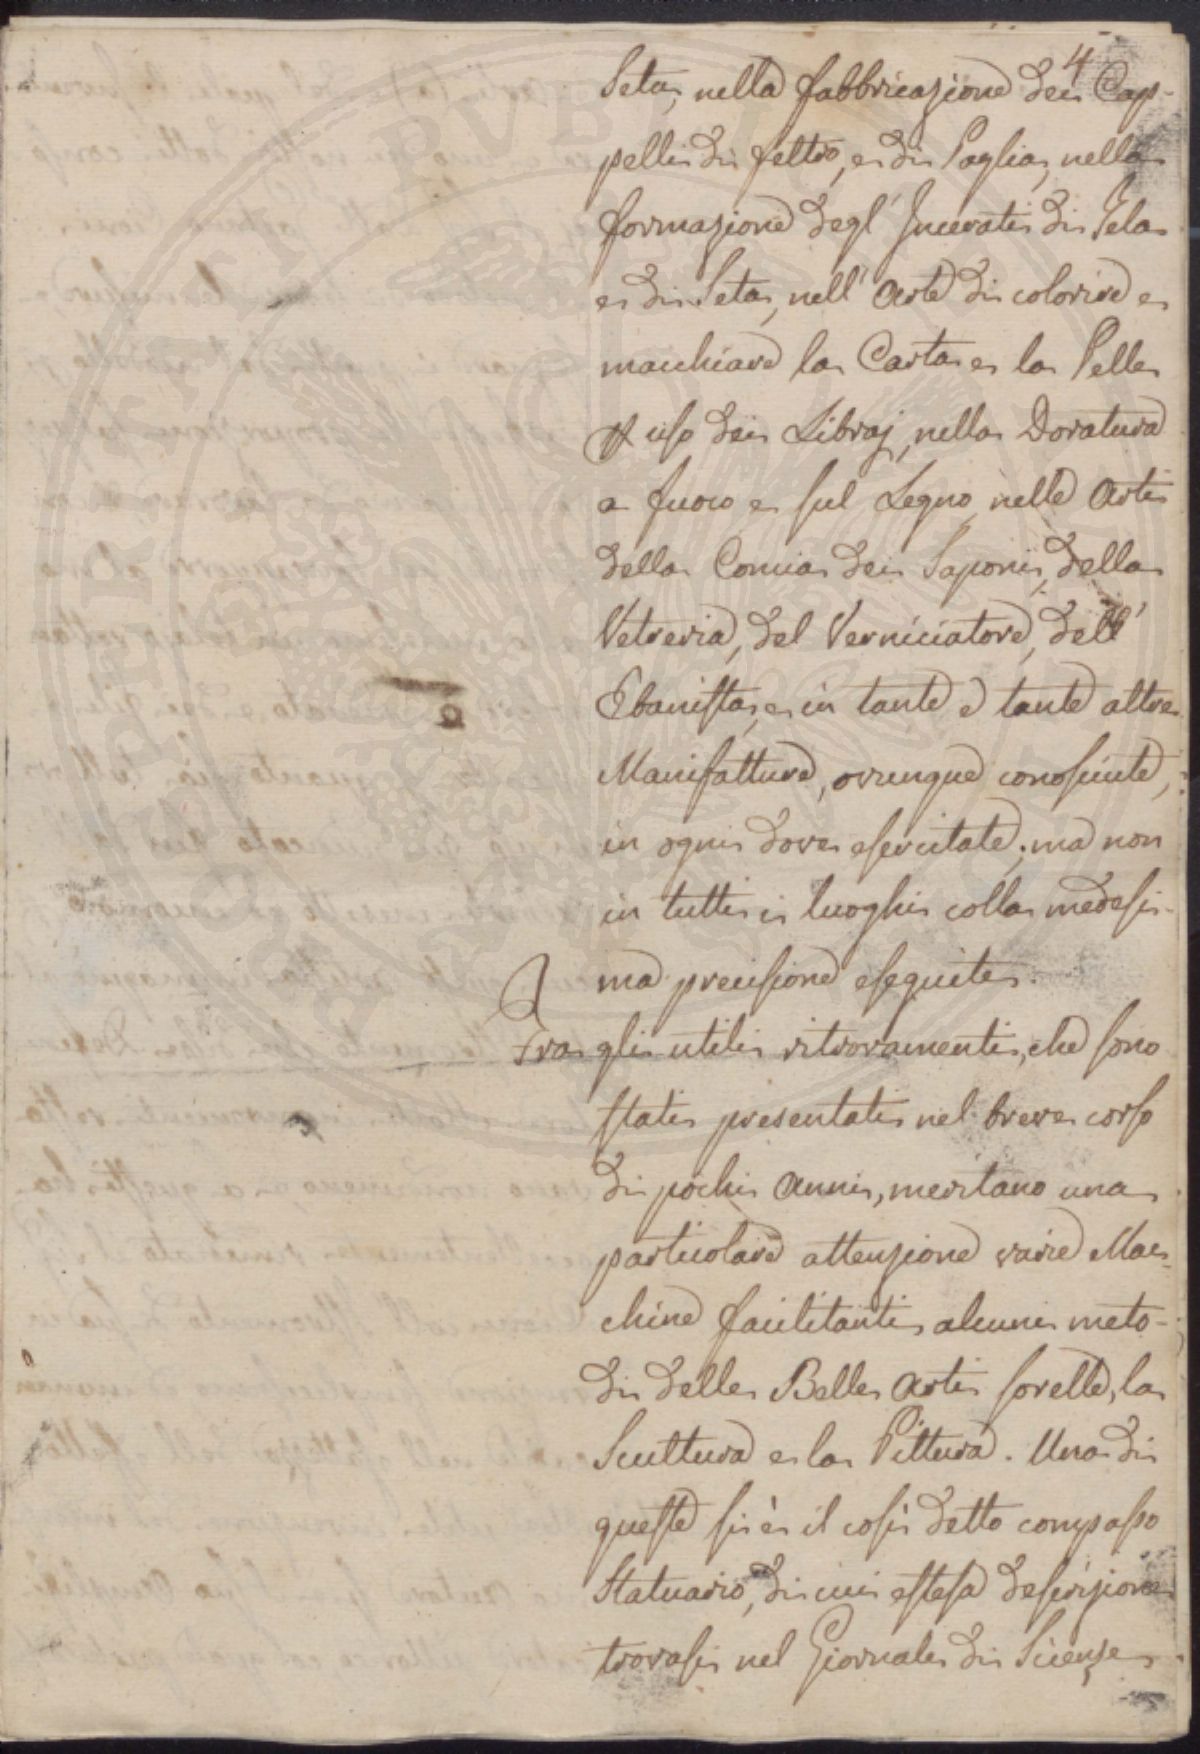 4
Seta, nella fabbricazione dei Cap-
pelli di feltro, e di Paglia, nella
formazione degl' Incerati di Tela
e di Seta, nell' Arte di colorire e
macchiare la Carta e la Pelle
uso dei Libraj, nella Doratura
a fuoco e sul Legno, nelle Arti
della Concia dei Saponi, della
Vetreria, del Verniciatore, dell'
Ebanista, e in tante e tante altre
Manifatture, ovunque conosciute,
in ogni dove esercitate; ma non
in tutti i luoghi colla medesi-
ma precisione eseguite.
Fra gli utili ritrovamenti, che sono
stati presentati nel breve corso
di pochi Anni, meritano una
particolare attenzione varie Mac-
chine facilitanti alcuni meto-
di delle Belle Arti sorelle, la
Scultura e la Pittura. Una di
queste si è il così detto compasso
Statuario, di cui estesa descrizione
trovasi nel Giornale di Scienze